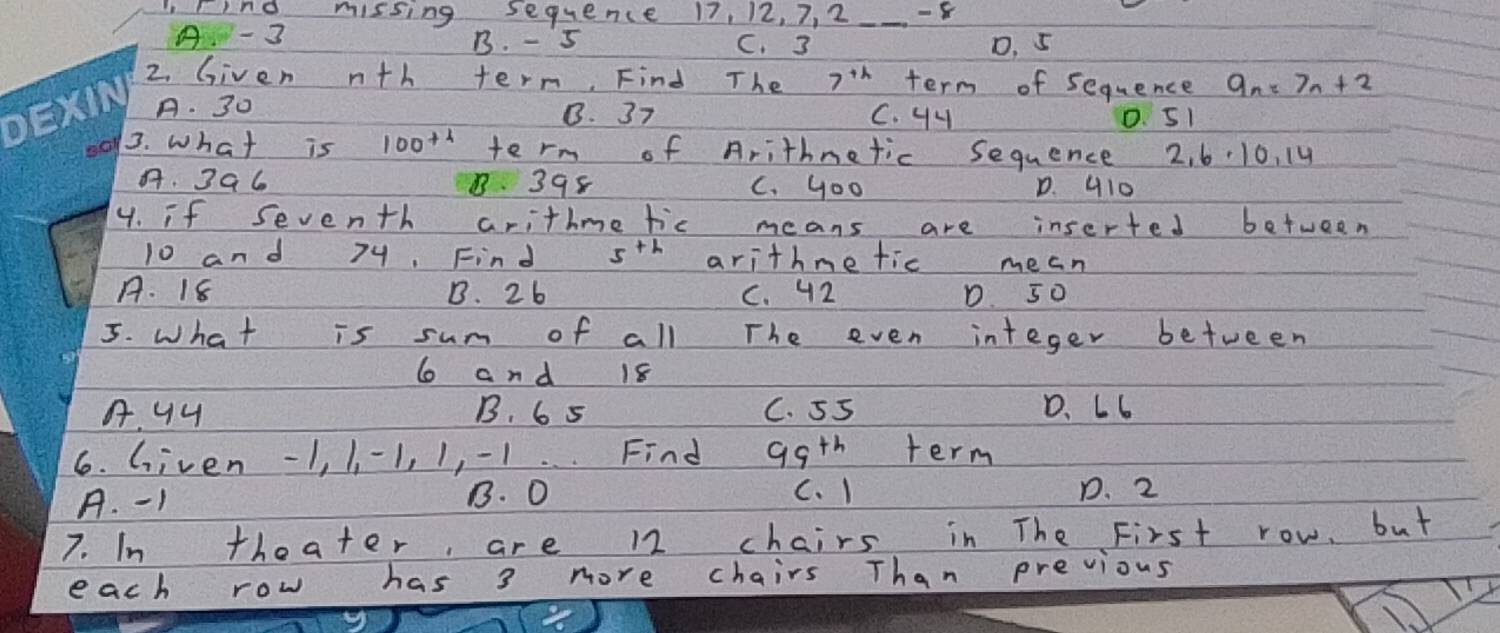 1. Find missing sequence 17, 12, 7, 2 __ -8
A. -3 B. -5 C. 3 D. 5
2. Given nth term, Find The 7th term of sequence an= 7n+2
A. 30 B. 37 C. 44 D. 51
3. What is 100th term of Arithmetic Sequence 2,6,10,14
A. 396 B. 398 C. 400 D. 410
4. if seventh arithmetic means are inserted between
10 and 74. Find 5th arithmetic mean
A. 18 B. 26 C. 42 D. 50
5. What is sum of all The even integer between
6 and 18
A. 44 B. 65 C. 55 D. 66
6. Given -1, 1, -1, 1, -1 ... Find 99th term
A. -1 B. 0 C. 1 D. 2
7. In theater, are 12 chairs in The First row. but
each row has 3 more chairs Than previous
DEXIN
9 ÷